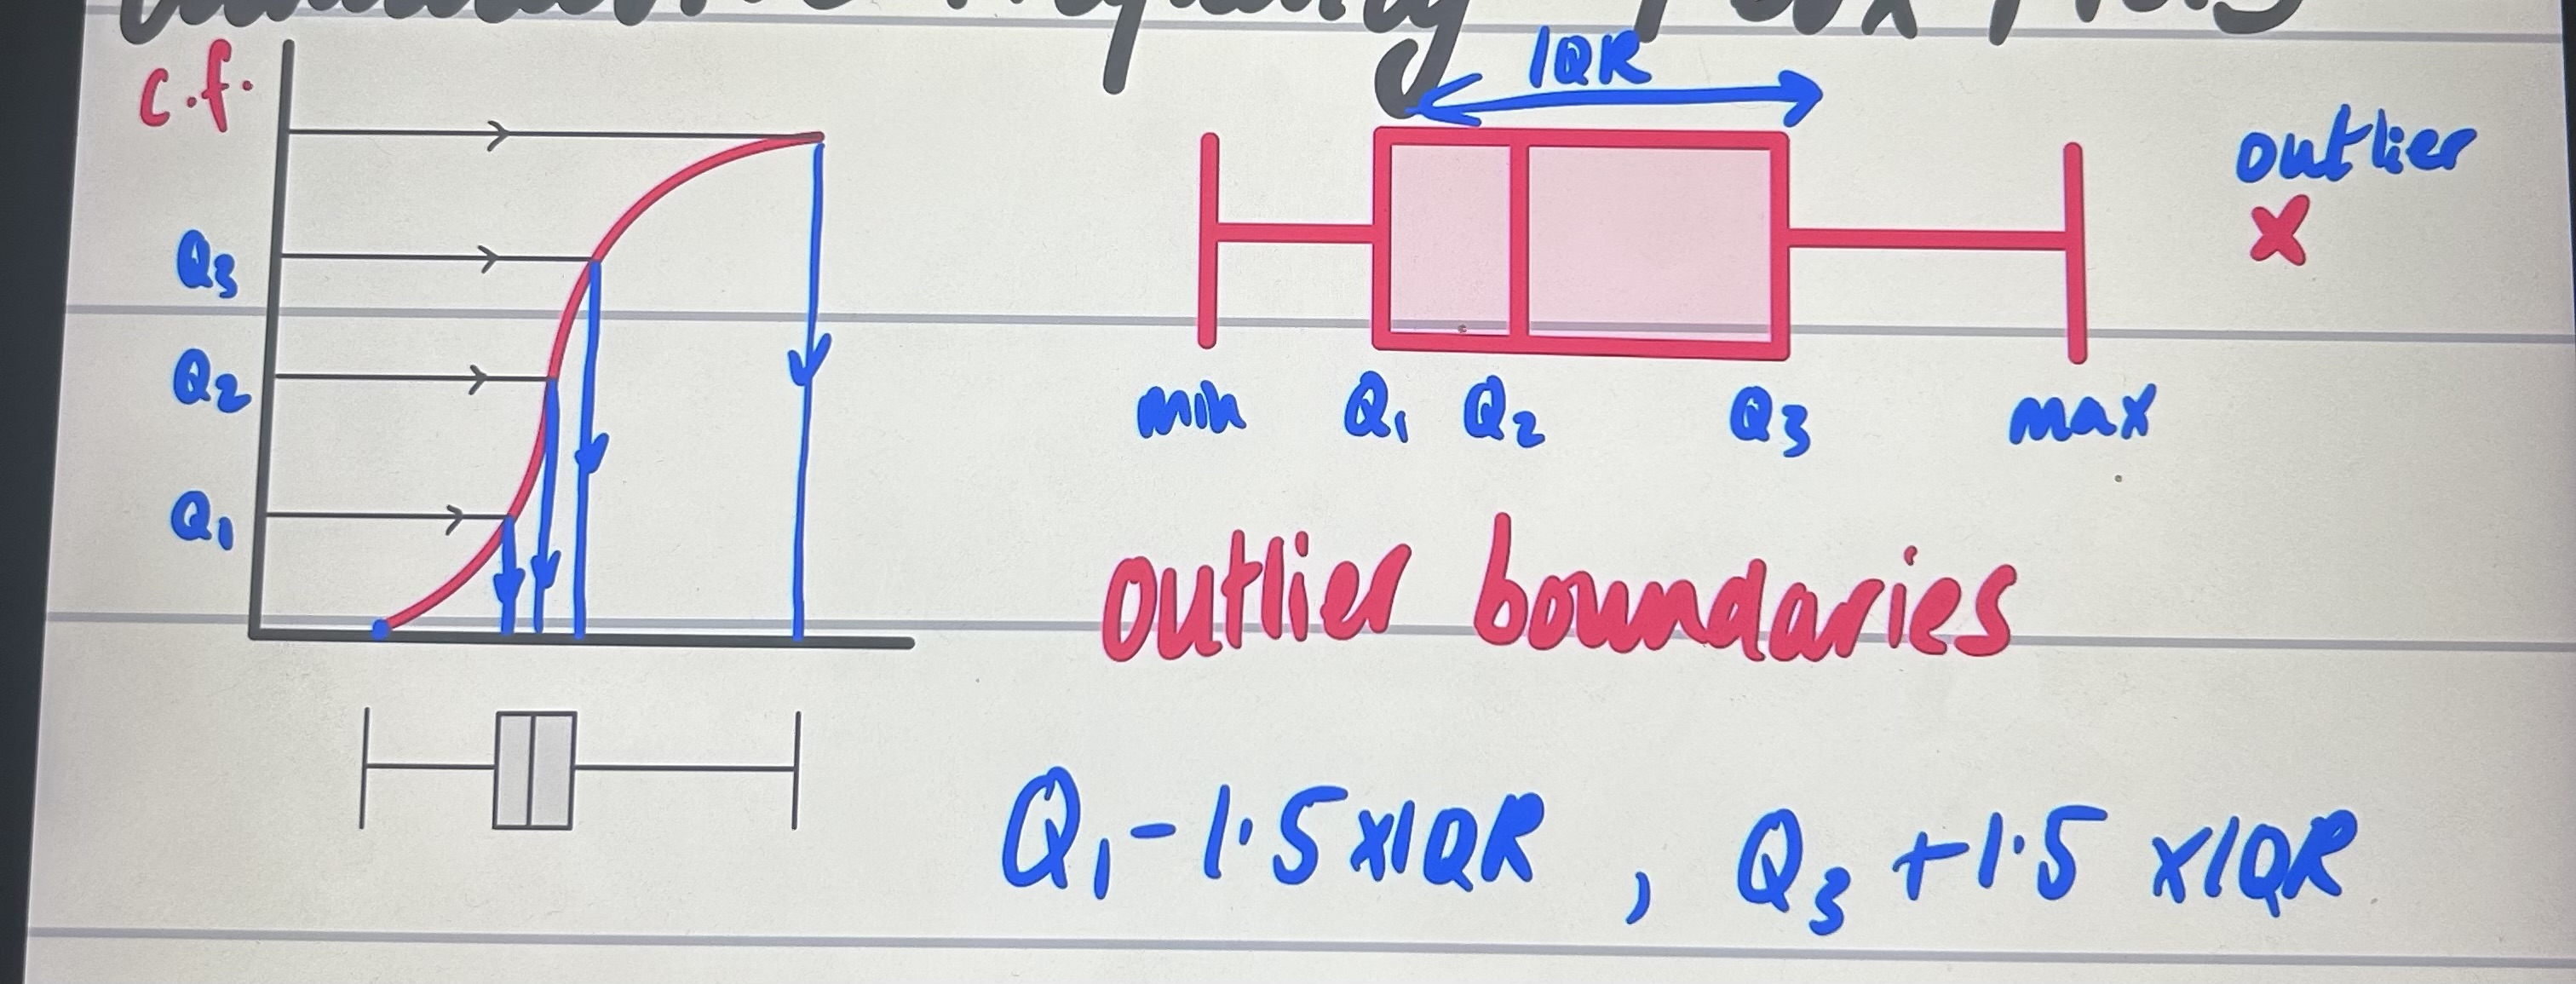 c.f.
Q3
Q2
Q1
IQR
outlier
min Q1 Q2 Q3 max
outlier boundaries
Q1 - 1.5 x IQR , Q3 + 1.5 x IQR